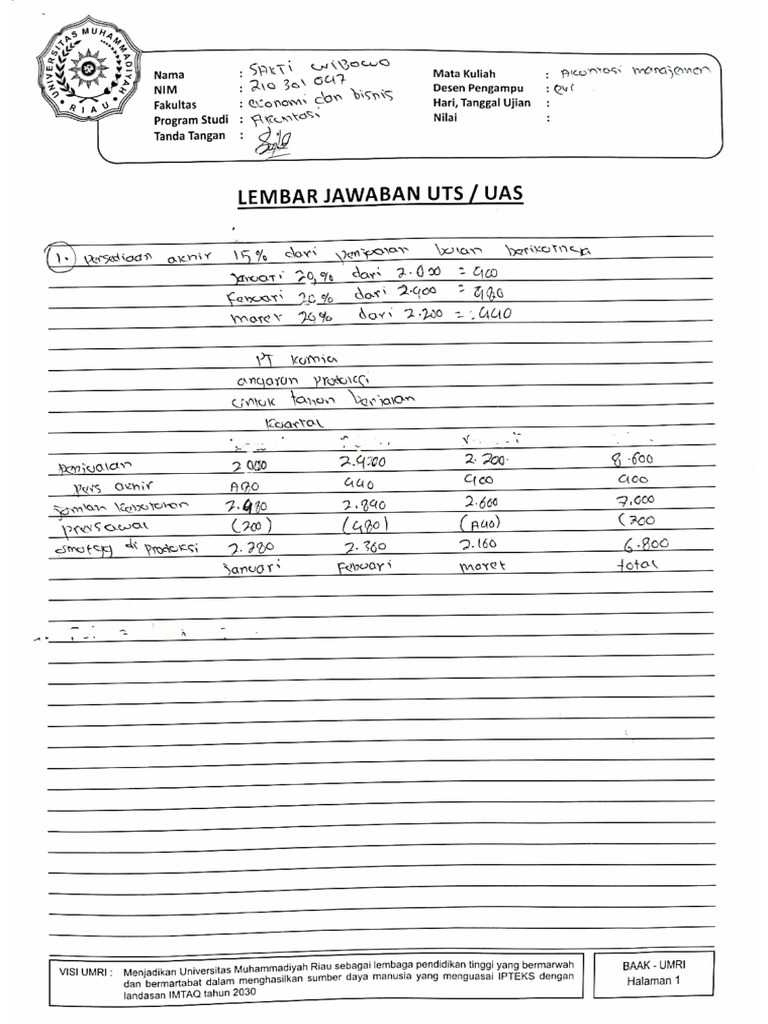 UNIVERSITAS MUHAMMADIYAH RIAU
Nama : SAKTI WIBOWO
NIM : 210 301 047
Fakultas : ekonomi dan bisnis
Program Studi : Akuntasi
Tanda Tangan :
Mata Kuliah : Akuntasi manajemen
Desen Pengampu :
Hari, Tanggal Ujian :
Nilai :
LEMBAR JAWABAN UTS / UAS
1. Persediaan akhir 15% dari penjualan bulan berikutnya
Januari 20% dari 2.000 = 400
Februari 20% dari 2.400 = 480
maret 20% dari 2.200 = 440
PT kurnia
angaran produksi
untuk tahun berjalan
kuartal
penjualan 2000 2.400 2.200 8.600
pers akhir 480 440 400 400
jumlah kebutuhan 2.480 2.840 2.600 7.000
pers awal (200) (480) (440) (200
di produksi 2.280 2.360 2.160 6.800
Januari Februari maret total
VISI UMRI : Menjadikan Universitas Muhammadiyah Riau sebagai lembaga pendidikan tinggi yang bermarwah
dan bermartabat dalam menghasilkan sumber daya manusia yang menguasai IPTEKS dengan
landasan IMTAQ tahun 2030
BAAK - UMRI
Halaman 1